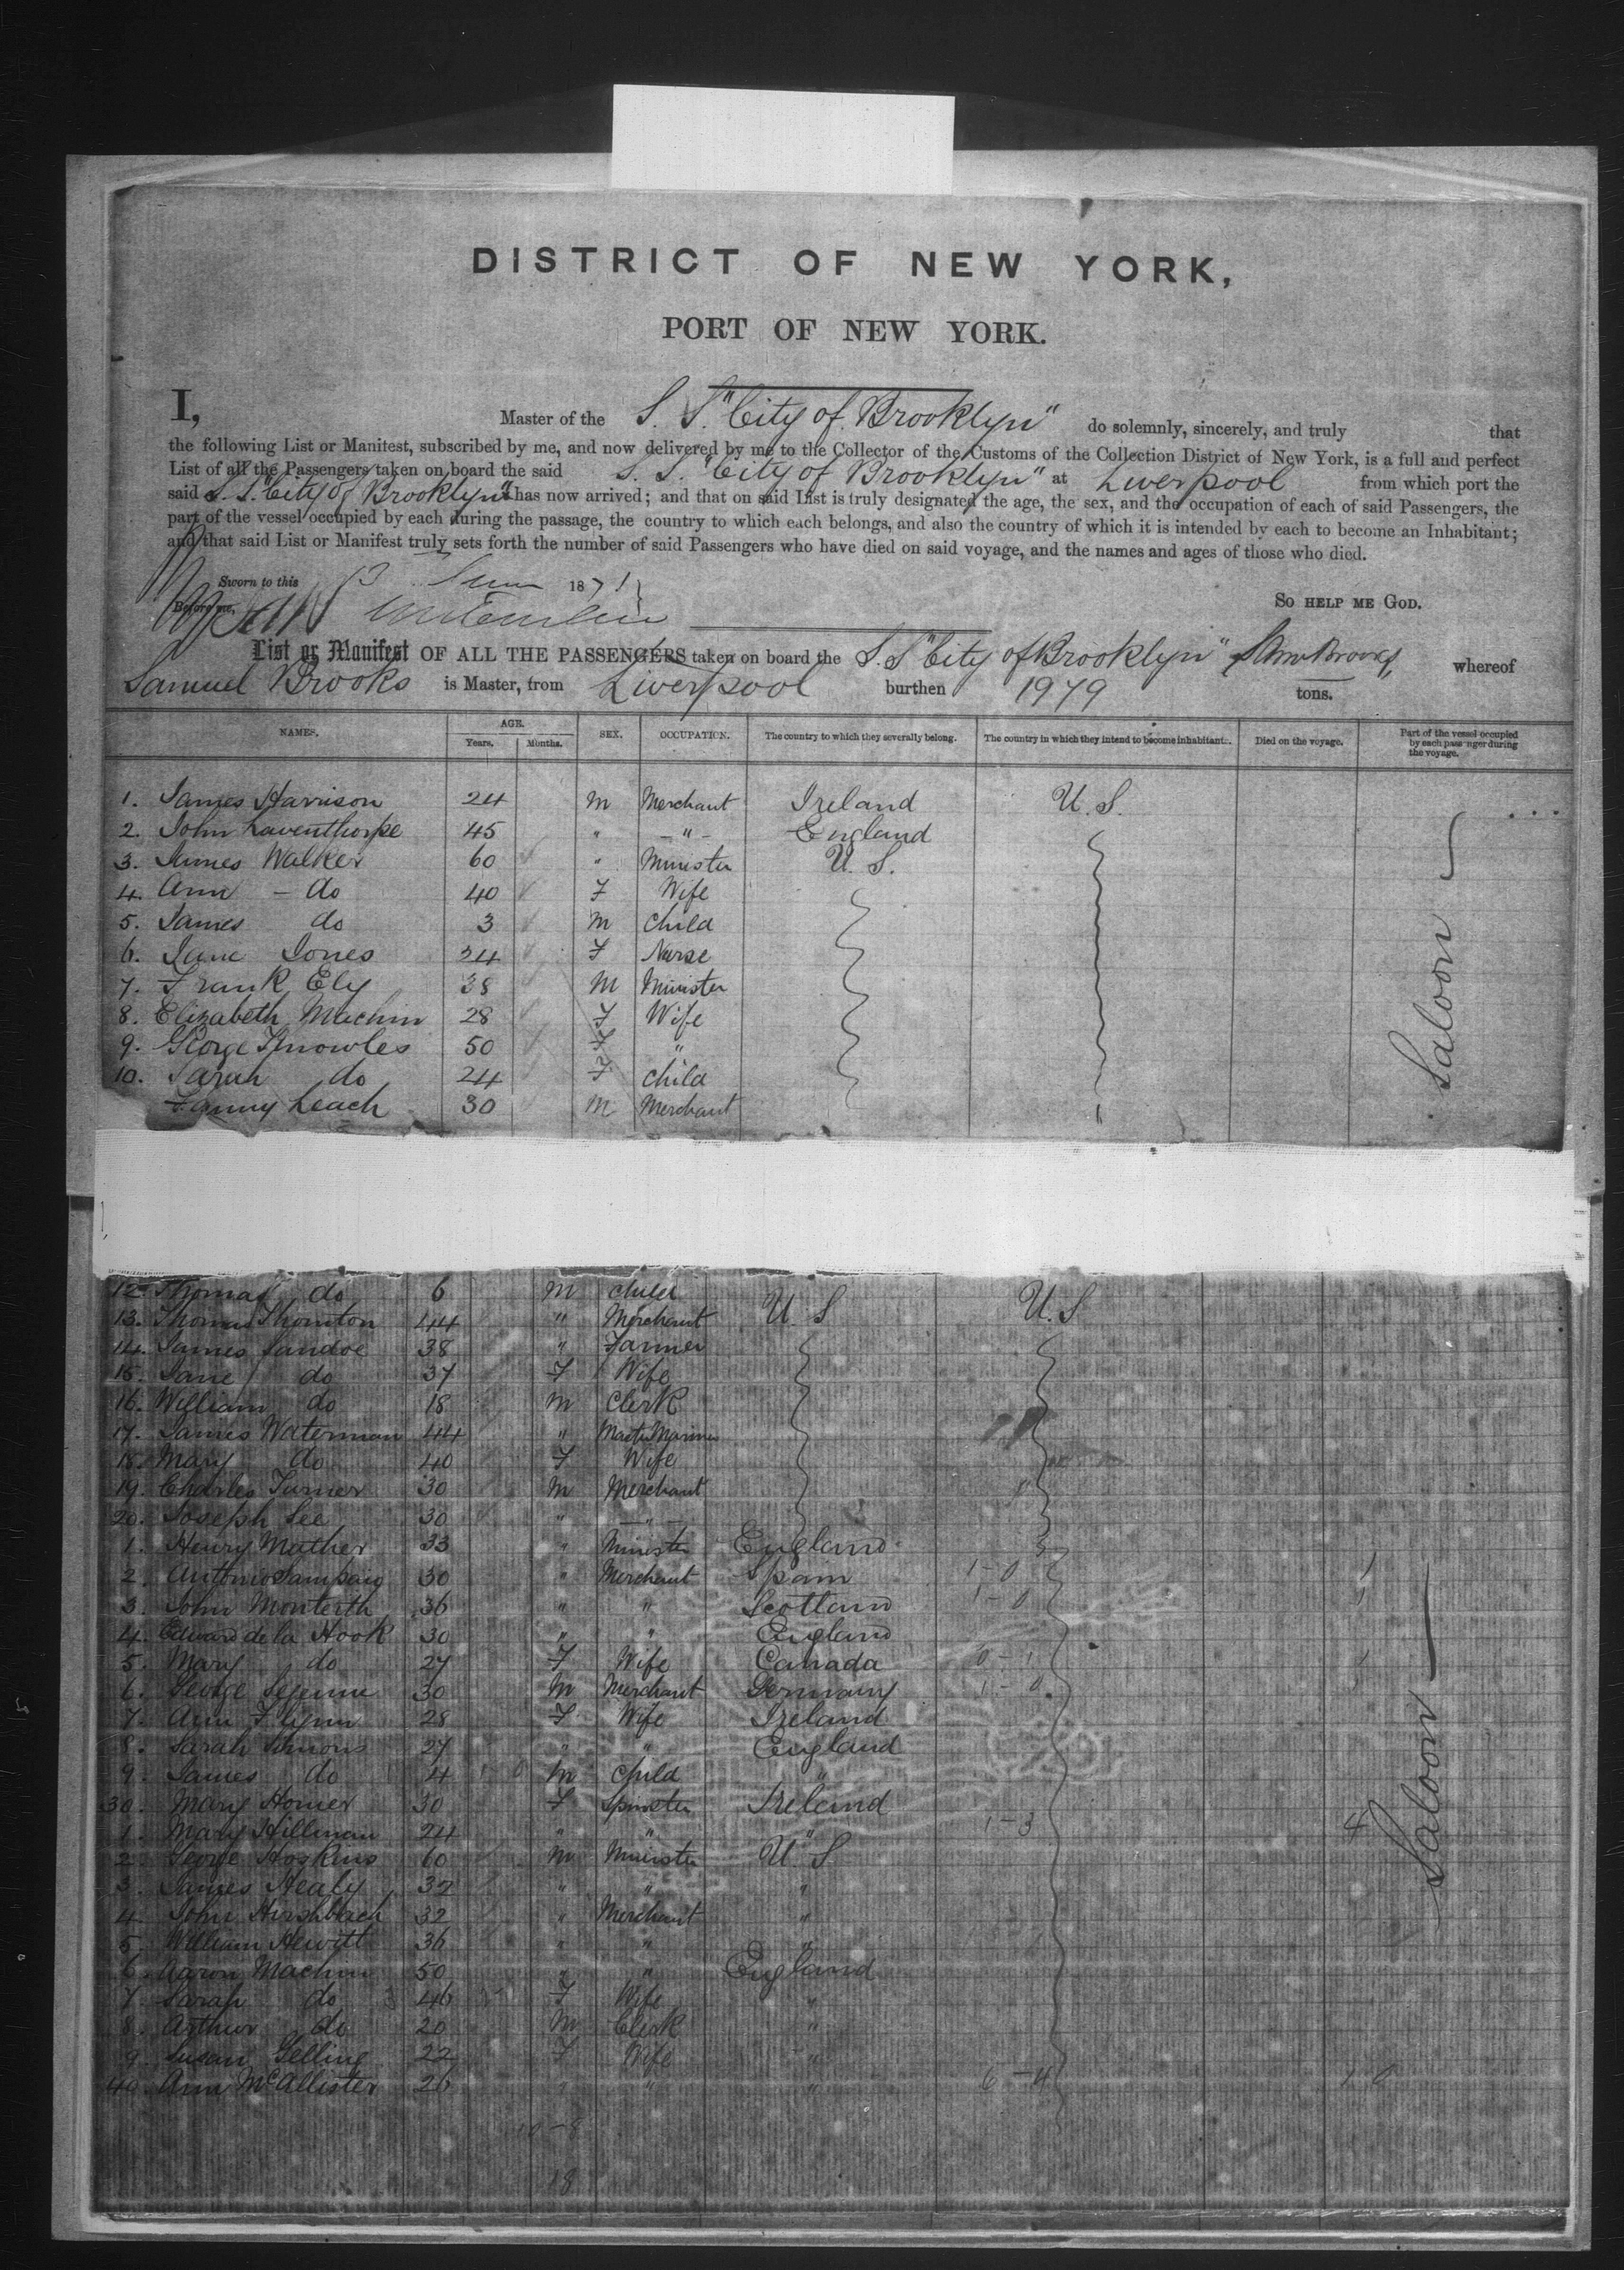 DISTRICT OF NEW YORK,
PORT OF NEW YORK.
I, Master of the S. S. "City of Brooklyn" do solemnly, sincerely, and truly that
the following List or Manifest, subscribed by me, and now delivered by me to the Collector of the Customs of the Collection District of New York, is a full and perfect
List of all the Passengers taken on board the said S. S. "City of Brooklyn" at Liverpool from which port the
said S. S. "City of Brooklyn" has now arrived; and that on said List is truly designated the age, the sex, and the occupation of each of said Passengers, the
part of the vessel occupied by each during the passage, the country to which each belongs, and also the country of which it is intended by each to become an Inhabitant;
and that said List or Manifest truly sets forth the number of said Passengers who have died on said voyage, and the names and ages of those who died.
Sworn to this 13 June 1871
Before me, So HELP ME GOD.
List or Manifest OF ALL THE PASSENGERS taken on board the S. S. "City of Brooklyn" whereof
Samuel Brooks is Master, from Liverpool burthen 1979 tons.
NAMES. AGE. Years. Months. SEX. OCCUPATION. The country to which they severally belong. The country in which they intend to become inhabitants. Died on the voyage. Part of the vessel occupied by each passenger during the voyage.
1. James Harrison 24 M Merchant Ireland U. S.
2. John Laventhorpe 45 " - " - England
3. James Walker 60 " Minister U. S.
4. Ann - do 40 F Wife
5. James do 3 M Child
6. Jane Jones 24 F Nurse
7. Frank Ely 38 M Minister
8. Elizabeth Machin 28 F Wife
9. George Knowles 50 F "
10. Sarah do 24 F Child
Fanny Leach 30 M Merchant "
Saloon
12 Thomas do 6 M Child U. S U. S
13. Thomas Thornton 44 " Merchant
14. James Sandoe 38 " Farmer
15. Jane do 37 F Wife
16. William do 18 M Clerk
17. James Waterman 44 " Master Mariner
18. Mary do 40 F Wife
19. Charles Turner 30 M Merchant "
20. Joseph Lee 30 " - " -
1. Henry Mather 33 " Minister England
2. Antonio Sampaio 30 " Merchant Spain 1-0 1
3. John Monterth 36 " " Scotland 1-0 1
4. Edward de la Hook 30 " " England
5. Mary do 27 F Wife Canada 0-1 1
6. George Lejeune 30 M Merchant Germany 1-0 1
7. Ann Flynn 28 F Wife Ireland
8. Sarah Simons 27 " " England
9. James do 4 M Child "
30. Mary Homer 30 F Spinster Ireland
1. Mary Hillman 24 " " " 1-3 4
2. George Hoskins 60 M Minister U. S
3. James Healy 32 " " "
4. John Hirshblach 32 " Merchant "
5. William Hewitt 36 " " "
6. Aaron Machin 50 " " England
7. Sarah do 46 F Wife "
8. Arthur do 20 M Clerk "
9. Susan Gelling 22 F Wife "
40. Ann McAllister 26 " " " 6-4 10
Saloon
10-8
18